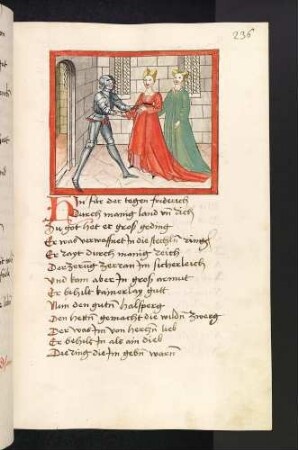 236
Hin für der tegen friderich
Durch manig land vn̄ rich
Zu got het er groß geding
Er was verwoffnet in die stechln̄ ringe
Er rayt durch manig reich
Der zerug zerran im sicherleich
Vnd kam aber in groß armut
Er behilt kainerlay gutt
Nun den gutn̄ halsperg
Den hetn̄ gemacht die wildn̄ zwerg
Der was im von hertzn̄ lieb
Er behilt in als ain dieb
Die ring die im gebn̄ warn̄